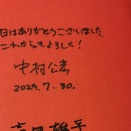 日はありがとうございました
これからもよろしく!
中村公
2029.7.30.